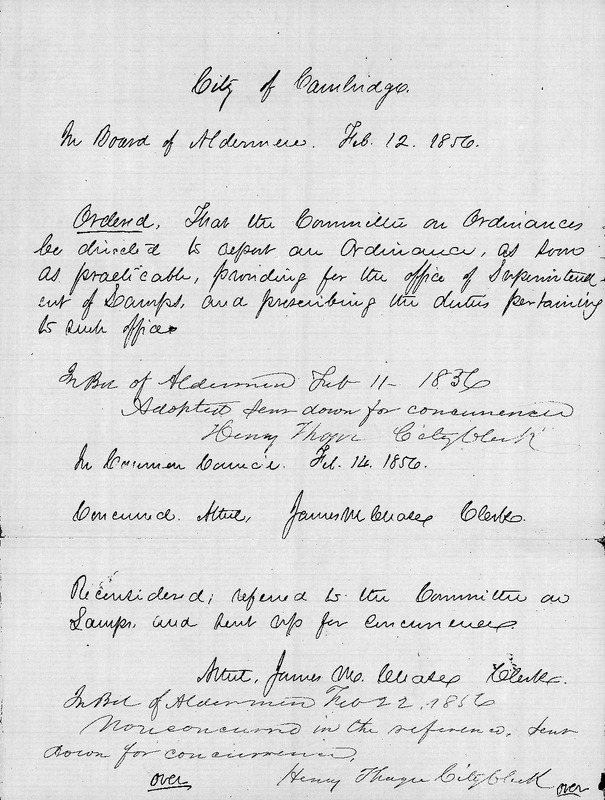 City of Cambridge.
In Board of Aldermen. Feb. 12. 1856.
Ordered, That the Committee on Ordinances
be directed to report an Ordinance, as soon
as practicable, providing for the office of Superintend-
ent of Lamps, and prescribing the duties pertaining
to such office
In Bd of Aldermen Feb 11 - 1856
Adopted sent down for concurrence
Henry Thayer City Clerk
In Common Council. Feb. 14. 1856.
Concurred. Attest, James M. Chase Clerk.
Reconsidered; referred to the Committee on
Lamps, and sent up for concurrence
Attest, James M. Chase Clerk.
In Bd of Aldermen Feb 22, 1856
Nonconcurred in the reference, sent
down for concurrence,
Henry Thayer City Clerk
over over